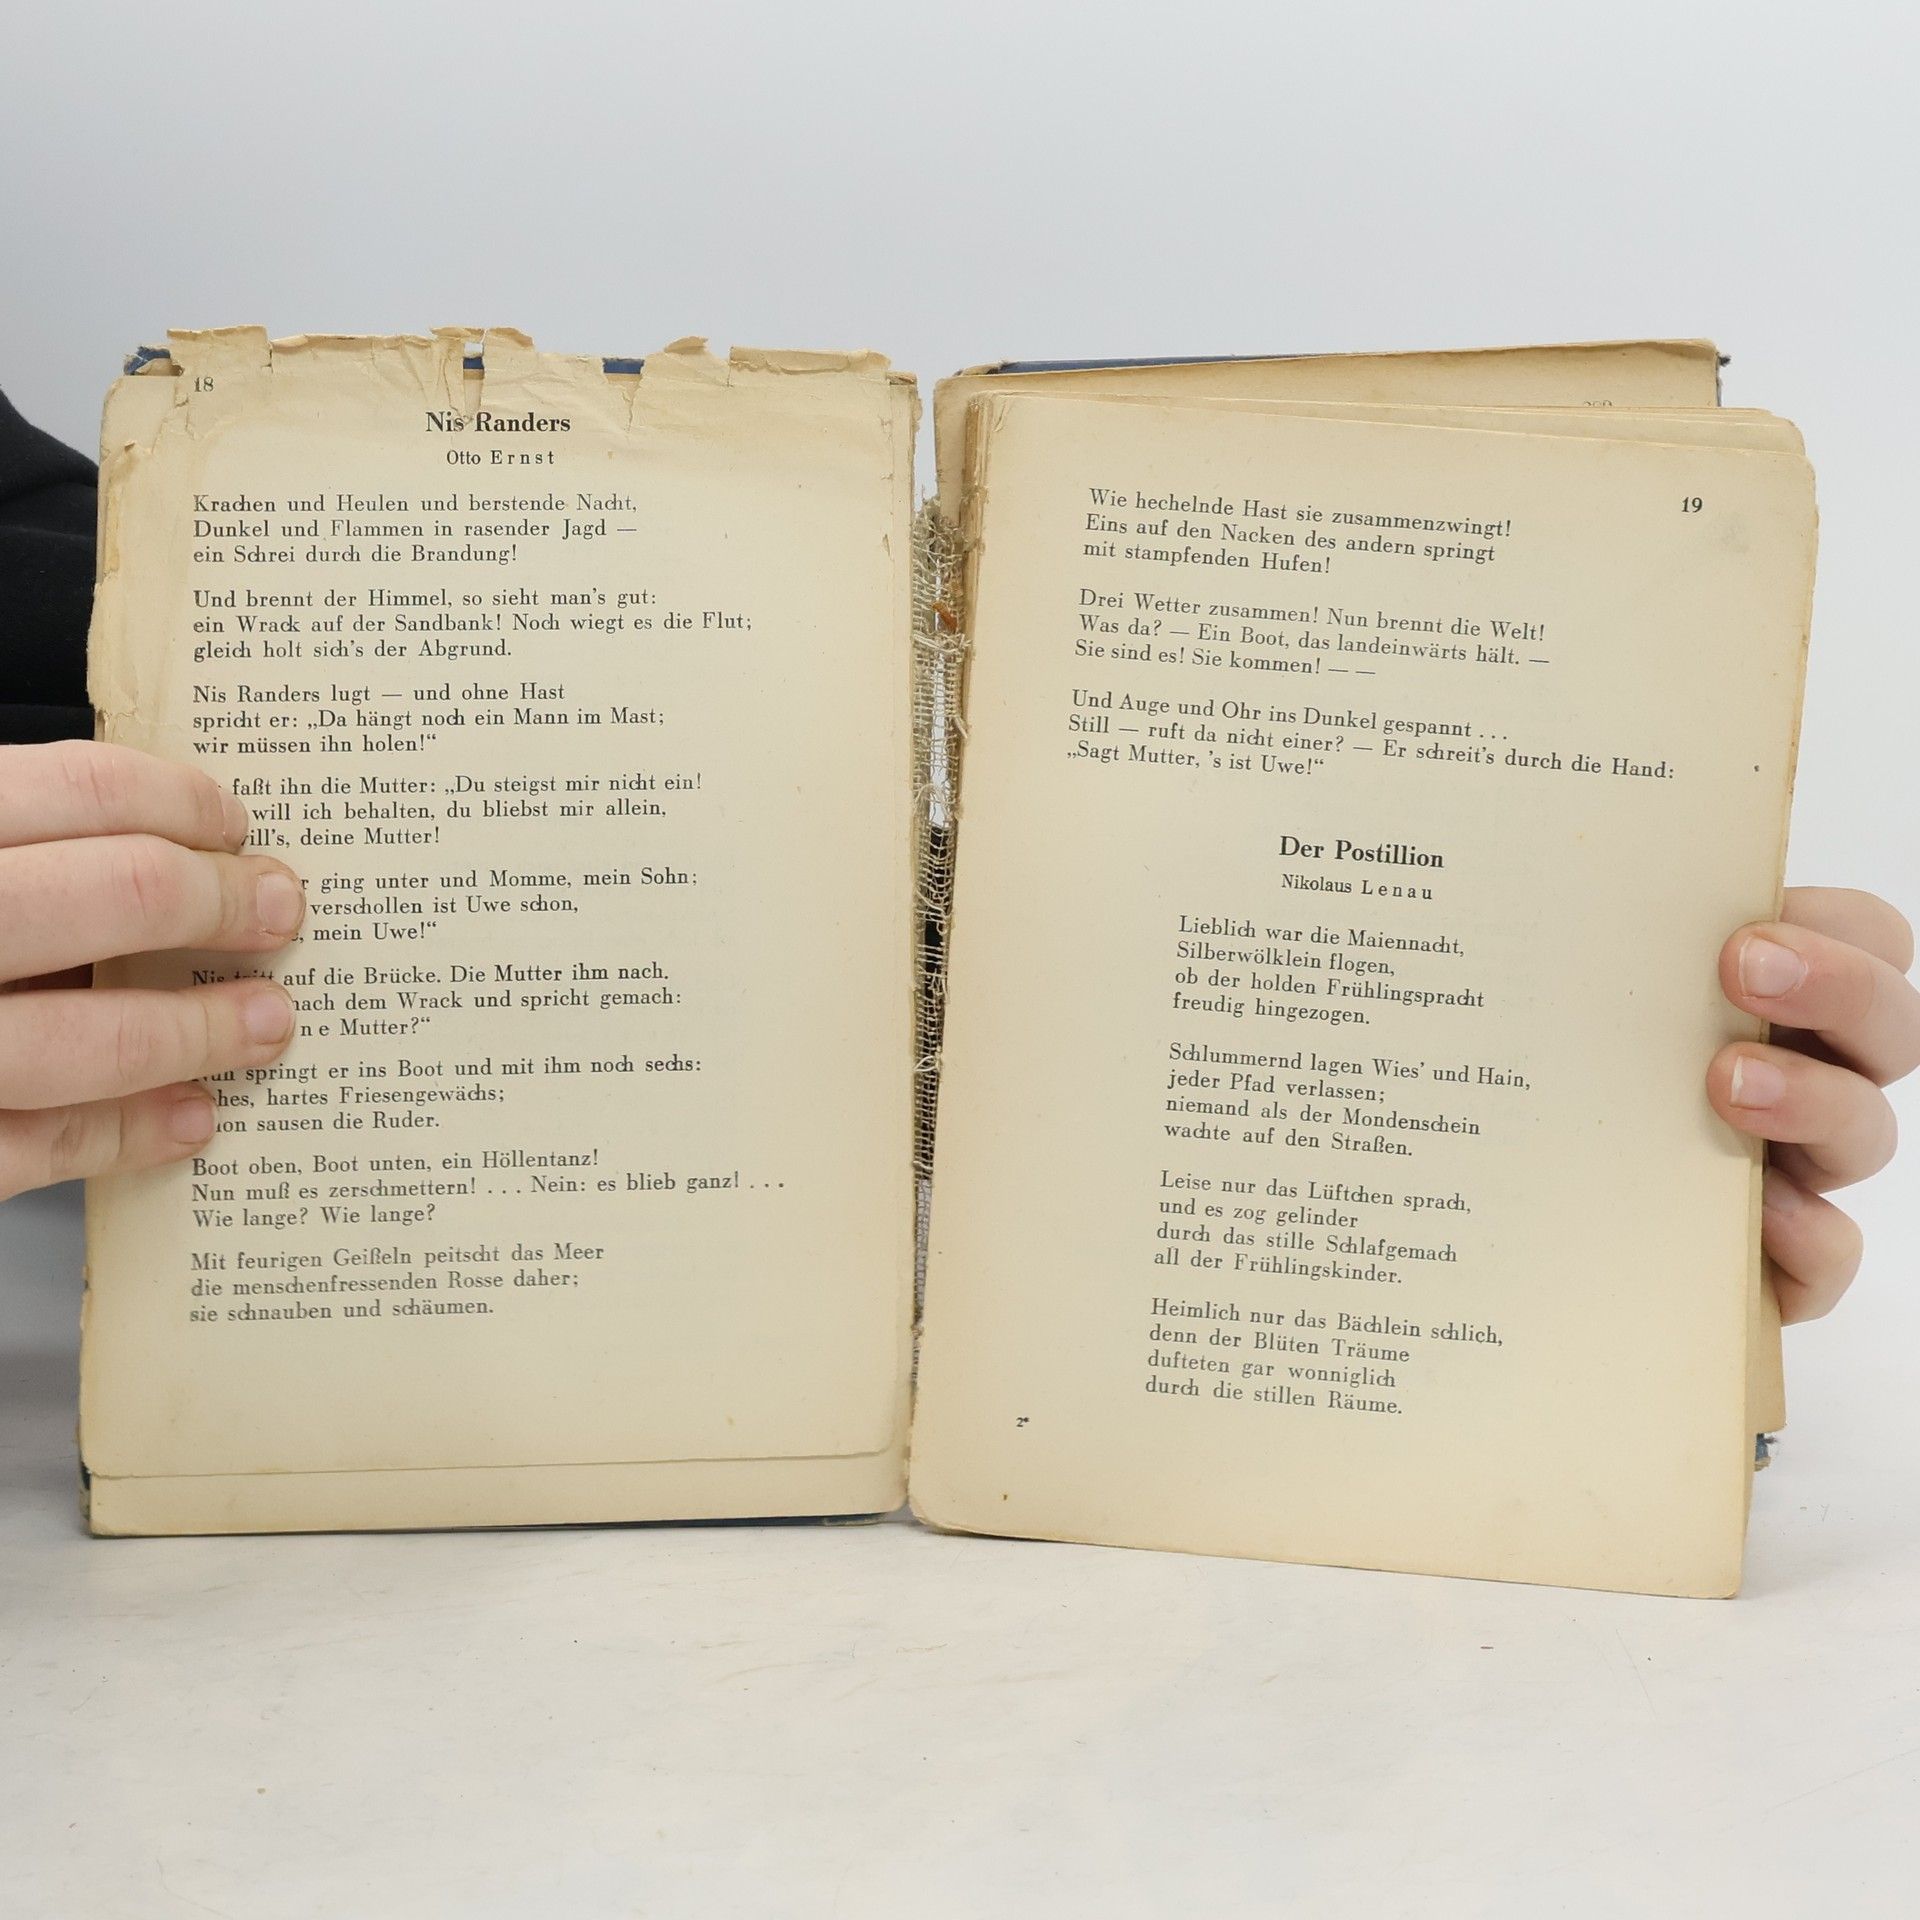 18
Nis Randers
Otto Ernst
Krachen und Heulen und berstende Nacht,
Dunkel und Flammen in rasender Jagd —
ein Schrei durch die Brandung!
Und brennt der Himmel, so sieht man's gut:
ein Wrack auf der Sandbank! Noch wiegt es die Flut;
gleich holt sich's der Abgrund.
Nis Randers lugt — und ohne Hast
spricht er: „Da hängt noch ein Mann im Mast;
wir müssen ihn holen!“
faßt ihn die Mutter: „Du steigst mir nicht ein!
will ich behalten, du bliebst mir allein,
deine Mutter!
ging unter und Momme, mein Sohn;
verschollen ist Uwe schon,
mein Uwe!“
Nis tritt auf die Brücke. Die Mutter ihm nach.
nach dem Wrack und spricht gemach:
Mutter?“
Nun springt er ins Boot und mit ihm noch sechs:
hartes Friesengewächs;
sausen die Ruder.
Boot oben, Boot unten, ein Höllentanz!
Nun muß es zerschmettern! . . . Nein: es blieb ganz! . . .
Wie lange? Wie lange?
Mit feurigen Geißeln peitscht das Meer
die menschenfressenden Rosse daher;
sie schnauben und schäumen.
19
Wie hechelnde Hast sie zusammenzwingt!
Eins auf den Nacken des andern springt
mit stampfenden Hufen!
Drei Wetter zusammen! Nun brennt die Welt!
Was da? — Ein Boot, das landeinwärts hält. —
Sie sind es! Sie kommen! — —
Und Auge und Ohr ins Dunkel gespannt . . .
Still — ruft da nicht einer? — Er schreit's durch die Hand:
„Sagt Mutter, 's ist Uwe!“
Der Postillion
Nikolaus Lenau
Lieblich war die Maiennacht,
Silberwölklein flogen,
ob der holden Frühlingspracht
freudig hingezogen.
Schlummernd lagen Wies' und Hain,
jeder Pfad verlassen;
niemand als der Mondenschein
wachte auf den Straßen.
Leise nur das Lüftchen sprach,
und es zog gelinder
durch das stille Schlafgemach
all der Frühlingskinder.
Heimlich nur das Bächlein schlich,
denn der Blüten Träume
dufteten gar wonniglich
durch die stillen Räume.
2*